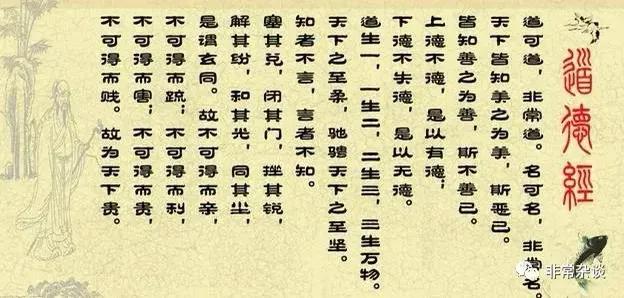 道德經
道可道，非常道。名可名，非常名。
天下皆知美之为美，斯恶已。
皆知善之为善，斯不善已。
上德不德，是以有德；
下德不失德，是以无德。
道生一，一生二，二生三，三生万物。
天下之至柔，驰骋天下之至坚。
知者不言，言者不知。
塞其兑，闭其门，挫其锐，
解其纷，和其光，同其尘，
是谓玄同。故不可得而亲，
不可得而疏；不可得而利，
不可得而害；不可得而贵，
不可得而贱。故为天下贵。
非常杂谈